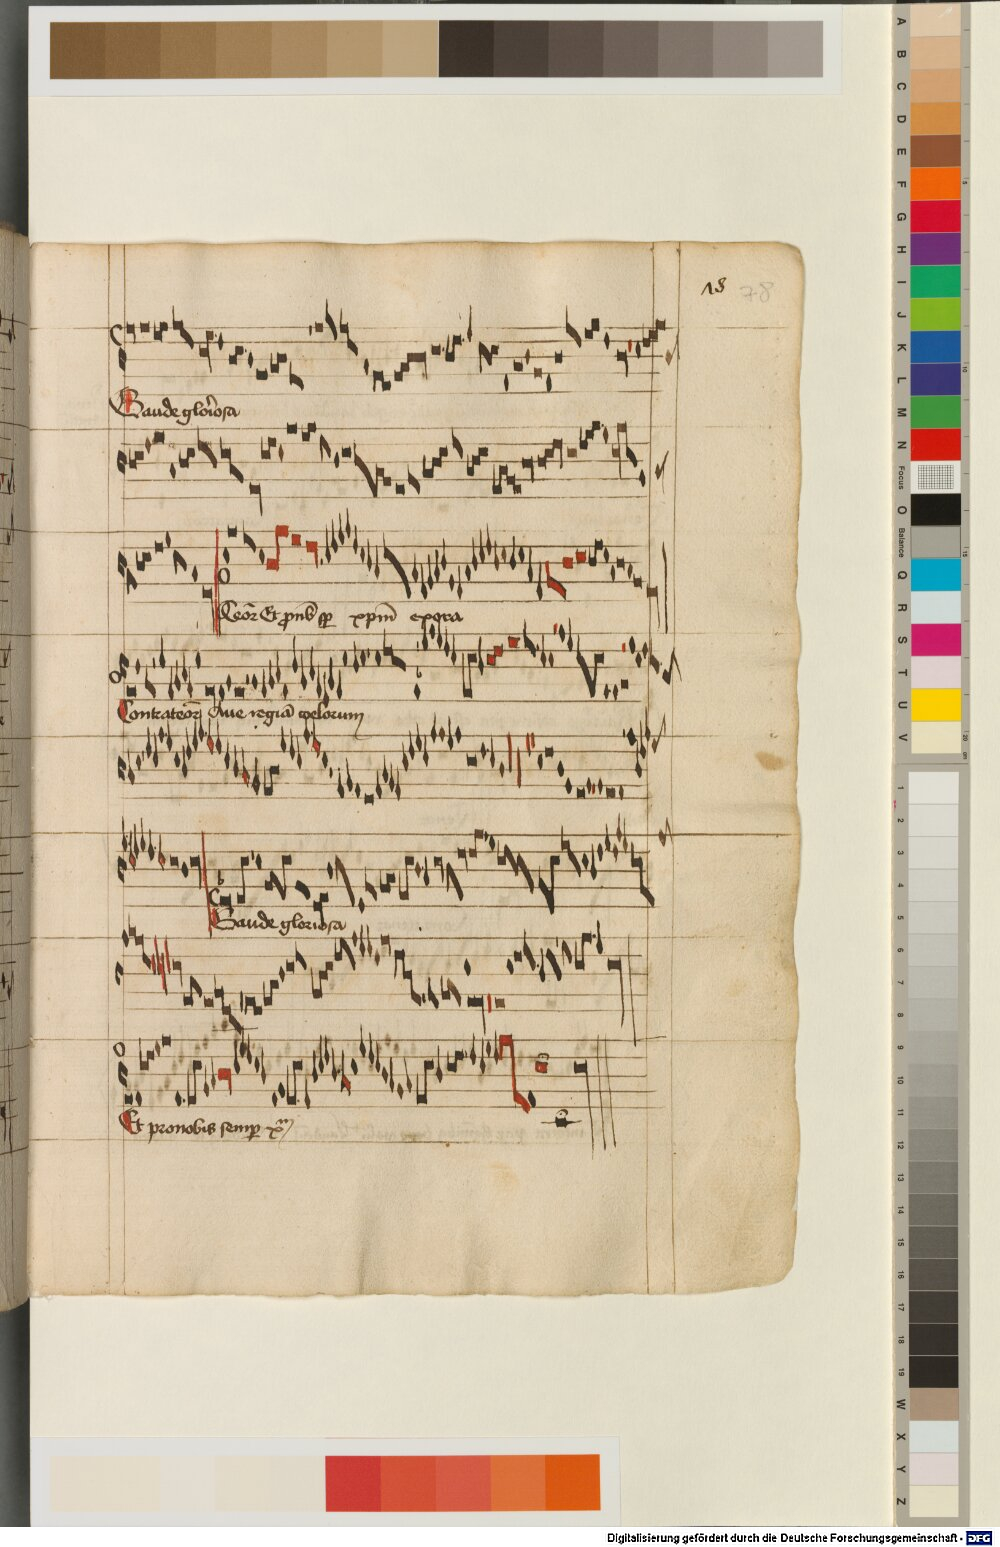 18 78
Gaude gloriosa
Teor Et pnb sp xpm exora
Contrateor Aue regia celorum
Gaude gloriosa
Et pronobis semp x
A B C D E F G H I J K L M N Focus O Balance Q R S T U V
1 2 3 4 5 6 7 8 9 10 11 12 13 14 15 16 17 18 19 W X Y Z
Digitalisierung gefördert durch die Deutsche Forschungsgemeinschaft - DFG